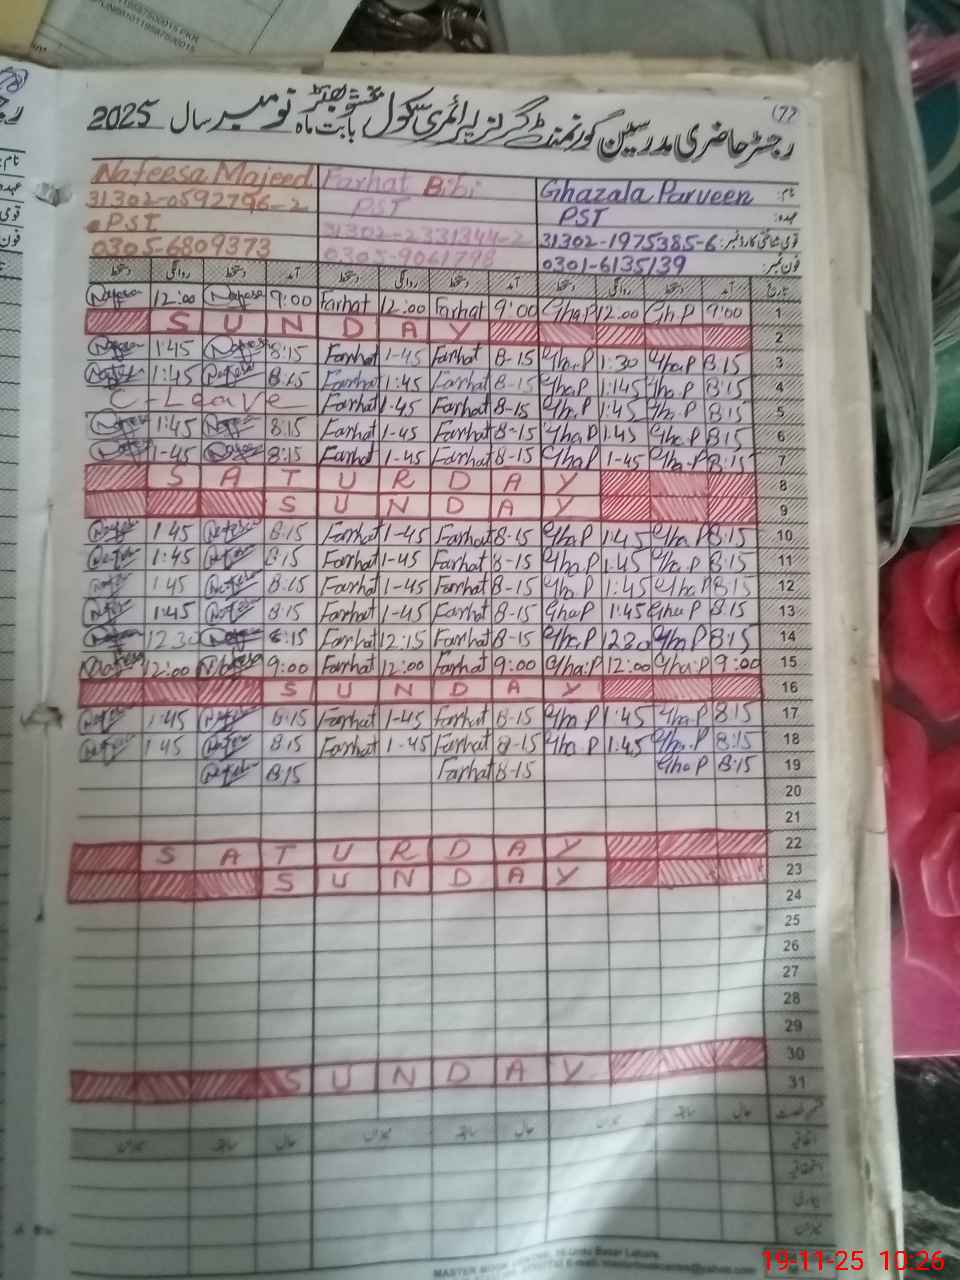 (7)
رجسٹر حاضری مدرسین گورنمنٹ گرلز پرائمری سکول بابت ماہ نومبر سال 2025
Nafeesa Majeed Farhat Bibi Ghazala Parveen نام:
31302-0592796-2 PST PST عہدہ:
PST 31302-2331344-2 31302-1975385-6 قومی شناختی کارڈ نمبر:
0305-6809373 0305-9061798 0301-6135139 فون نمبر:
دستخط روانگی دستخط آمد دستخط روانگی دستخط آمد دستخط روانگی دستخط آمد تاریخ
Nafeesa 12:00 Nafeesa 9:00 Farhat 12:00 Farhat 9:00 Gha.P 12.00 Gh.P 9:00 1
S U N D A Y 2
1:45 8:15 Farhat 1-45 Farhat 8-15 Gha.P 1:30 Gha.P 8:15 3
1:45 8:15 Farhat 1:45 Farhat 8-15 Gha.P 1:45 Gha.P 8:15 4
C-Leave Farhat 1-45 Farhat 8-15 Gha.P 1:45 Gha.P 8:15 5
1:45 8:15 Farhat 1-45 Farhat 8-15 Gha.P 1:45 Gha.P 8:15 6
1-45 8:15 Farhat 1-45 Farhat 8-15 Gha.P 1-45 Gha.P 8:15 7
S A T U R D A Y 8
S U N D A Y 9
1:45 8:15 Farhat 1-45 Farhat 8-15 Gha.P 1:45 Gha.P 8:15 10
1:45 8:15 Farhat 1-45 Farhat 8-15 Gha.P 1:45 Gha.P 8:15 11
1:45 8:15 Farhat 1-45 Farhat 8-15 Gha.P 1:45 Gha.P 8:15 12
1:45 8:15 Farhat 1-45 Farhat 8-15 Gha.P 1:45 Gha.P 8:15 13
12.30 8:15 Farhat 12:15 Farhat 8-15 Gha.P 12:30 Gha.P 8:15 14
Nafeesa 12:00 Nafeesa 9:00 Farhat 12:00 Farhat 9:00 Gha.P 12:00 Gha.P 9:00 15
S U N D A Y 16
1:45 8:15 Farhat 1-45 Farhat 8-15 Gha.P 1:45 Gha.P 8:15 17
1:45 8:15 Farhat 1-45 Farhat 8-15 Gha.P 1:45 Gha.P 8:15 18
8:15 Farhat 8-15 Gha.P 8:15 19
20
21
S A T U R D A Y 22
S U N D A Y 23
24
25
26
27
28
29
S U N D A Y 30
31
میزان سابقہ حال میزان سابقہ حال میزان سابقہ حال
اتفاقیہ
استحقاقیہ
بیماری
میزان
Urdu Bazar Lahore.
19-11-25 10:26